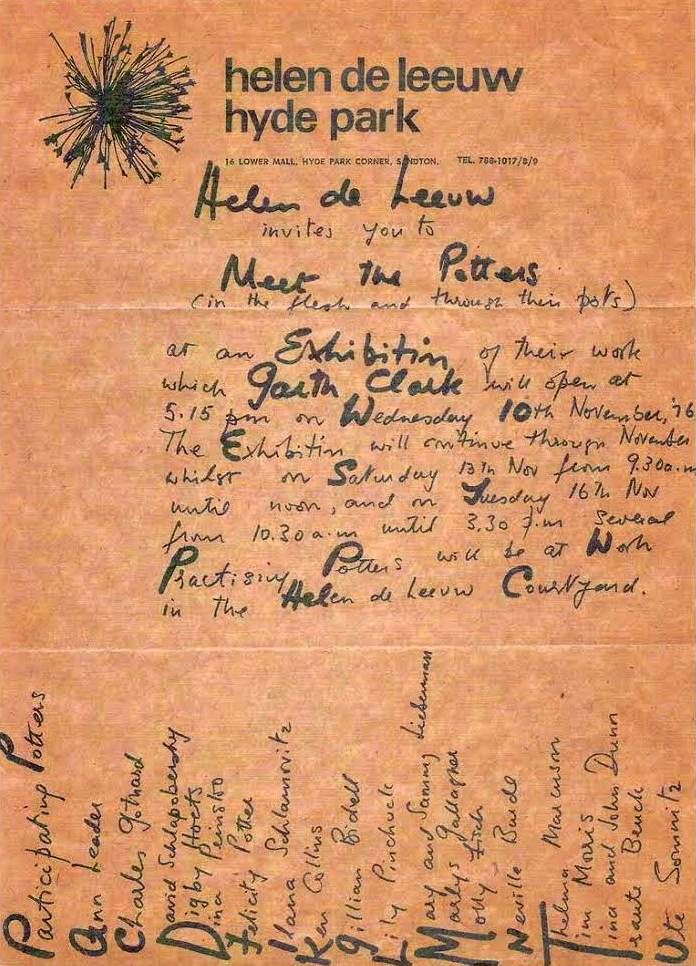 helen de leeuw
hyde park
16 LOWER MALL, HYDE PARK CORNER, SANDTON. TEL. 788-1017/8/9
Helen de Leeuw
invites you to
Meet the Potters
(in the flesh and through their pots)
at an Exhibition of their work
which Garth Clark will open at
5.15 pm on Wednesday 10th November, '76
The Exhibition will continue through November
whilst on Saturday 13th Nov from 9.30a.m
until noon, and on Tuesday 16th Nov
from 10.30 a.m until 3.30 p.m several
Practising Potters will be at Work
in the Helen de Leeuw Courtyard.
Participating Potters
Ann Leader
Charles Gotnard
David Schlapobersky
Digby Hoets
Dina Prinsloo
Felicity Potter
Ilana Schlamovitz
Ken Collins
Gillian Bickell
Lily Pinchuck
Mary and Sammy Liebermann
Marlys Gallagher
Molly Fisch
Neville Burde
Thelma Marcuson
Tim Morris
Tina and John Dunn
Traute Benck
Ute Sommitz